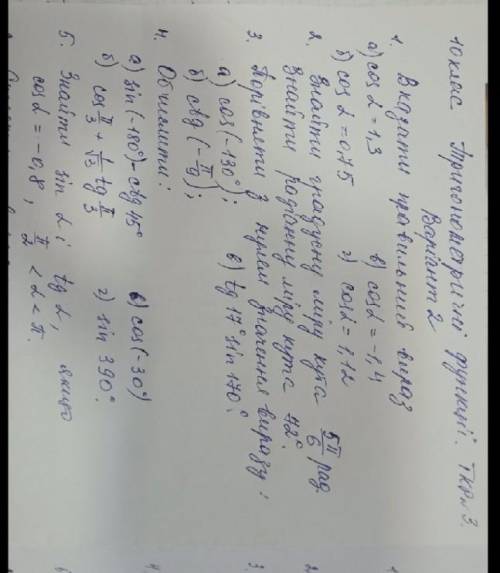 10 клас Тригонометричні функції. ТКР№3.
Варіант 2
1. Вказати правильний вираз
а) cos α = 1,3 в) cos α = -1,4
б) cos α = 0,75 г) cos α = 1,12
2. Знайти градусну міру кута 5π/6 рад.
Знайти радіанну міру кута 42°.
3. Порівняти з нулем значення виразу:
а) cos(-130°); в) tg 17° sin 170°.
б) ctg(-π/9);
4. Обчислити:
а) sin(-180°) - ctg 45° в) cos(-30°)
б) cos π/3 + 1/√3 tg π/3 г) sin 390°.
5. Знайти sin α і tg α, якщо
cos α = -0,8, π/2 < α < π.
1
2.
3.
4.